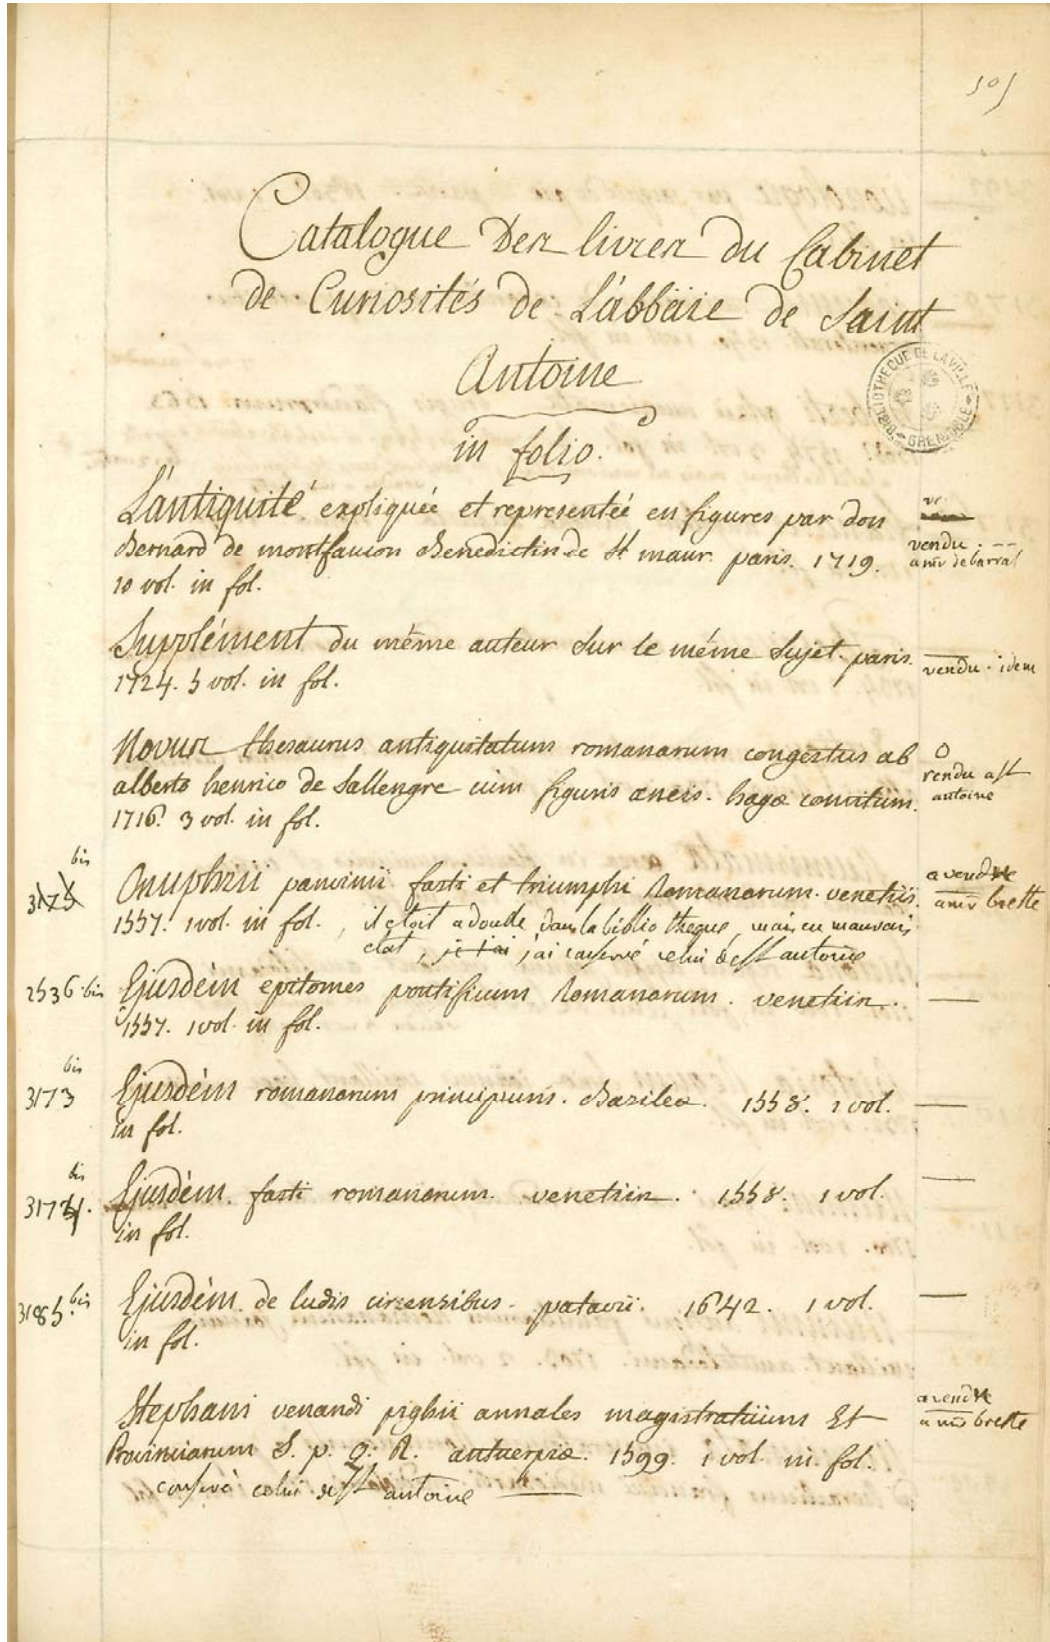 505
Catalogue Des livres du Cabinet
de Curiosités de L'abbaïe de Saint
Antoine
in folio.
BIBLIOTHEQUE DE LA VILLE
GRENOBLE
L'antiquité expliquée et representée en figures par don
Bernard de montfaucon Benedictin de St maur. paris. 1719.
10 vol. in fol.
vendu
a mr de barral
Supplément du même auteur Sur le même Sujet. paris.
1724. 5 vol. in fol.
vendu. idem
Novus thesaurus antiquitatum romanarum congestus ab
alberto henrico de Sallengre cum figuris æneis. hagæ comitum.
1716. 3 vol. in fol.
O
rendu a st
antoine
bis
Onuphrii panvinii fasti et triumphi Romanorum. venetiis.
1557. 1 vol. in fol., il etoit a double dans la bibliotheque, mais en mauvais
etat, je l'ai j'ai conservé celui de st antoine
a vendre
a mr brette
2536 bis Ejusdèm epitomes pontificum Romanorum. venetiis.
1557. 1 vol. in fol.
bis
3173 Ejusdèm romanorum principum. Basileæ. 1558. 1 vol.
in fol.
bis
3174. Ejusdèm fasti romanorum. venetiis. 1558. 1 vol.
in fol.
3185. bis Ejusdèm de ludis circensibus. patavii. 1642. 1 vol.
in fol.
Stephani venandi pighii annales magistratuum Et
Provinciarum S. p. Q. R. antuerpiæ. 1599. 1 vol. in fol.
conservé celui de st antoine
a vendre
a mr brette